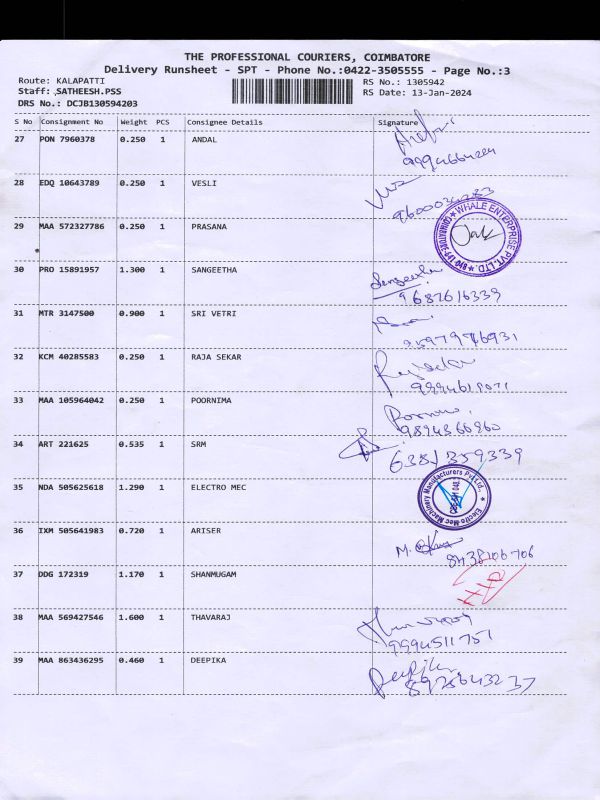 THE PROFESSIONAL COURIERS, COIMBATORE
Delivery Runsheet - SPT - Phone No.:0422-3505555 - Page No.:3
Route: KALAPATTI
RS No.: 1305942
Staff: SATHEESH.PSS
RS Date: 13-Jan-2024
DRS No.: DCJB130594203
S No Consignment No Weight PCS Consignee Details Signature
27 PON 7960378 0.250 1 ANDAL
28 EDQ 10643789 0.250 1 VESLI
29 MAA 572327786 0.250 1 PRASANA
WHALE ENTERPRISE PVT.LTD.
30 PRO 15891957 1.300 1 SANGEETHA
Sangeetha
9687616339
31 MTR 3147500 0.900 1 SRI VETRI
32 KCM 40285583 0.250 1 RAJA SEKAR
33 MAA 105964042 0.250 1 POORNIMA
9894366860
34 ART 221625 0.535 1 SRM
6381359339
35 NDA 505625618 1.290 1 ELECTRO MEC
Electro Mec Machinery Manufacturers Pvt Ltd.
36 IXM 505641983 0.720 1 ARISER
8438106706
37 DDG 172319 1.170 1 SHANMUGAM
38 MAA 569427546 1.600 1 THAVARAJ
9994511751
39 MAA 863436295 0.460 1 DEEPIKA
Deepika
8925643237